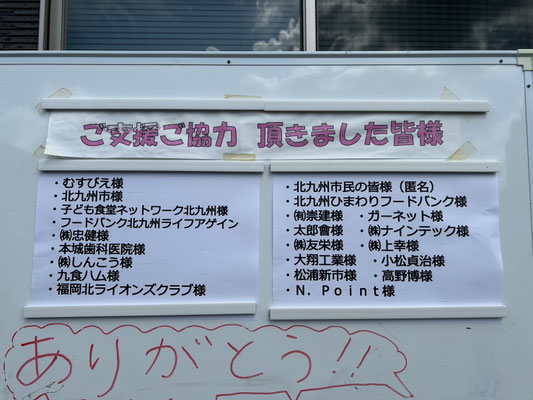 ご支援ご協力 頂きました皆様
・むすびえ様
・北九州市様
・子ども食堂ネットワーク北九州様
フードバンク北九州ライフアゲイン
・㈱忠健様
・本城歯科医院様
・㈱しんこう様
・九食ハム様
・福岡北ライオンズクラブ様
・北九州市民の皆様（匿名）
・北九州ひまわりフードバンク様
・㈲崇建様 ・ガーネット様
・太郎會様 ・㈱ナインテック様
・㈱友栄様 ・㈱上幸様
・大翔工業様 ・小松貞治様
・松浦新市様 ・高野博様
・N. Point様
ありがとう!!